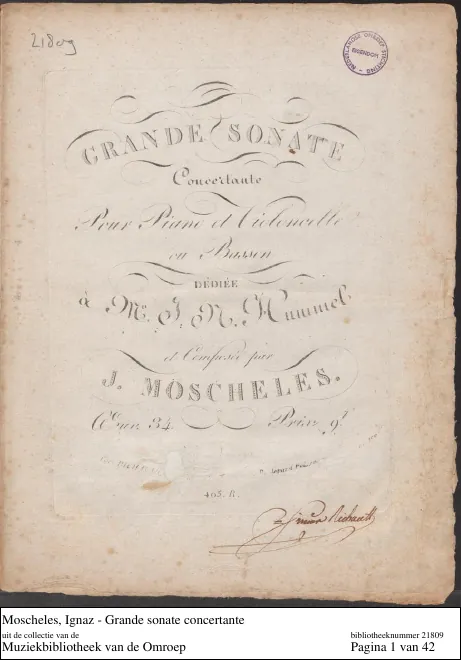 21809
NEDERLANDSE OMROEP STICHTING
EIGENDOM
GRANDE SONATE
Concertante
Pour Piano et Violoncelle
ou Basson
DÉDIÉE
à Mr. J. N. Hummel.
et Composée par
J. MOSCHELES.
Œuv. 34. Prix 9f
405. R.
Richault
Moscheles, Ignaz - Grande sonate concertante
uit de collectie van de
bibliotheeknummer 21809
Muziekbibliotheek van de Omroep
Pagina 1 van 42